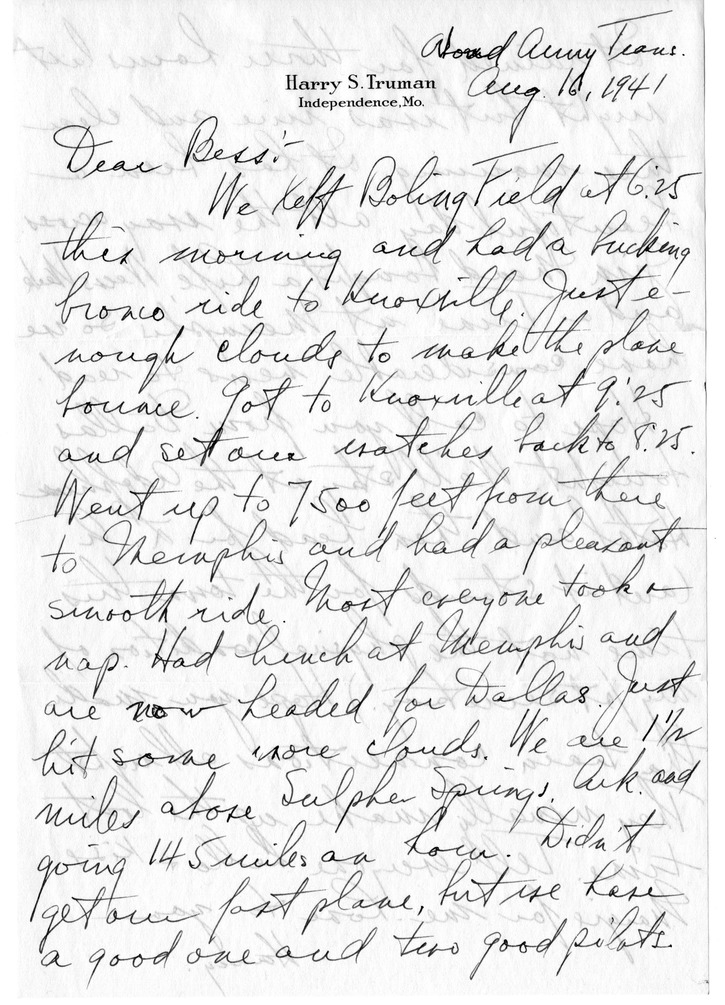 Aboard Army Trans.
Aug. 16, 1941
Harry S. Truman
Independence, Mo.
Dear Bess:-
We left Boling Field at 6:25
this morning and had a bucking
bronco ride to Knoxville. Just e-
nough clouds to make the plane
bounce. Got to Knoxville at 9:25
and set our watches back to 8:25.
Went up to 7500 feet from there
to Memphis and had a pleasant
smooth ride. Most everyone took a
nap. Had lunch at Memphis and
are now headed for Dallas. Just
hit some more clouds. We are 1 1/2
miles above Sulpher Springs, Ark. and
going 145 miles an hour. Didn't
get our fast plane, but we have
a good one and two good pilots.